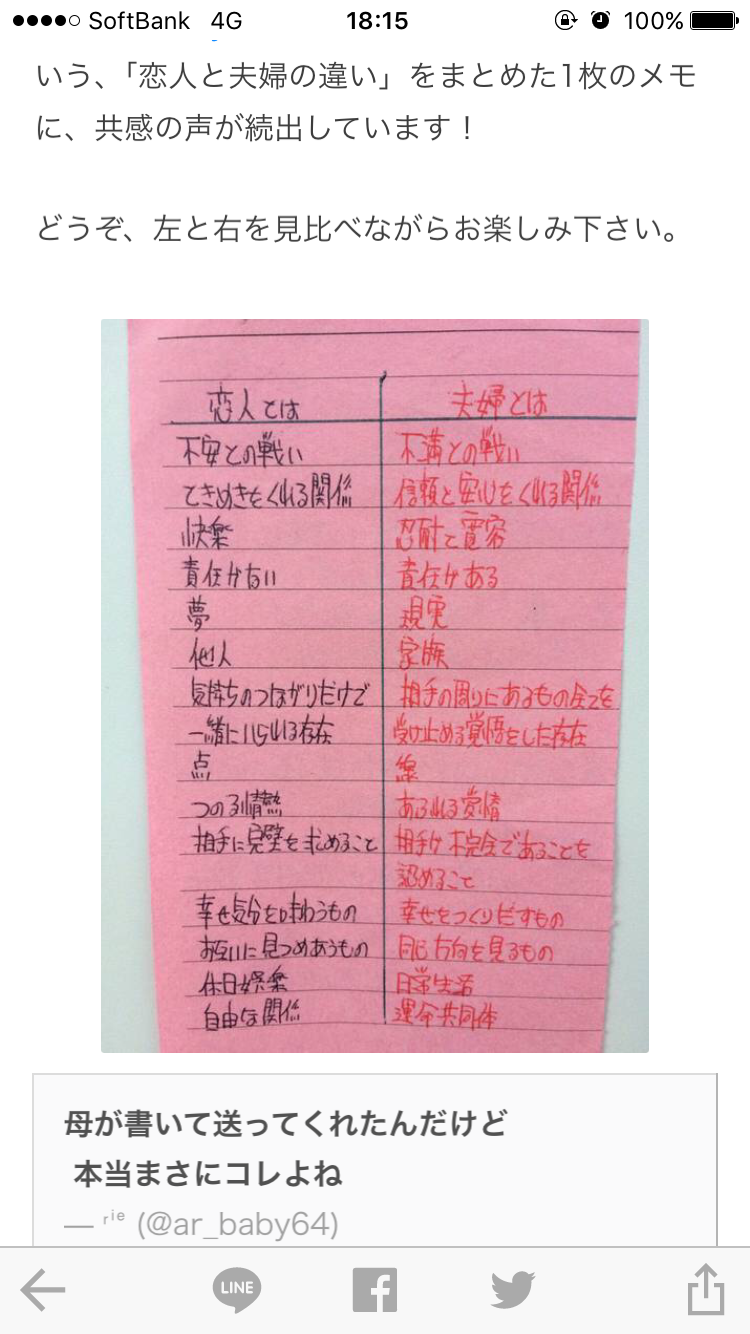 SoftBank 4G 18:15 100%
いう、「恋人と夫婦の違い」をまとめた1枚のメモ
に、共感の声が続出しています！
どうぞ、左と右を見比べながらお楽しみ下さい。
恋人とは 夫婦とは
不安との戦い 不満との戦い
ときめきをくれる関係 信頼と安心をくれる関係
快楽 忍耐と寛容
責任がない 責任がある
夢 現実
他人 家族
気持ちのつながりだけで 相手の周りにあるもの全てを
一緒にいられる存在 受け止める覚悟をした存在
点 線
つのる情熱 あふれる愛情
相手に完璧を求めること 相手が不完全であることを
認めること
幸せ気分を味わうもの 幸せをつくりだすもの
お互いに見つめあうもの 同じ方向を見るもの
休日娯楽 日常生活
自由な関係 運命共同体
母が書いて送ってくれたんだけど
本当まさにコレよね
— ʳⁱᵉ (@ar_baby64)
LINE